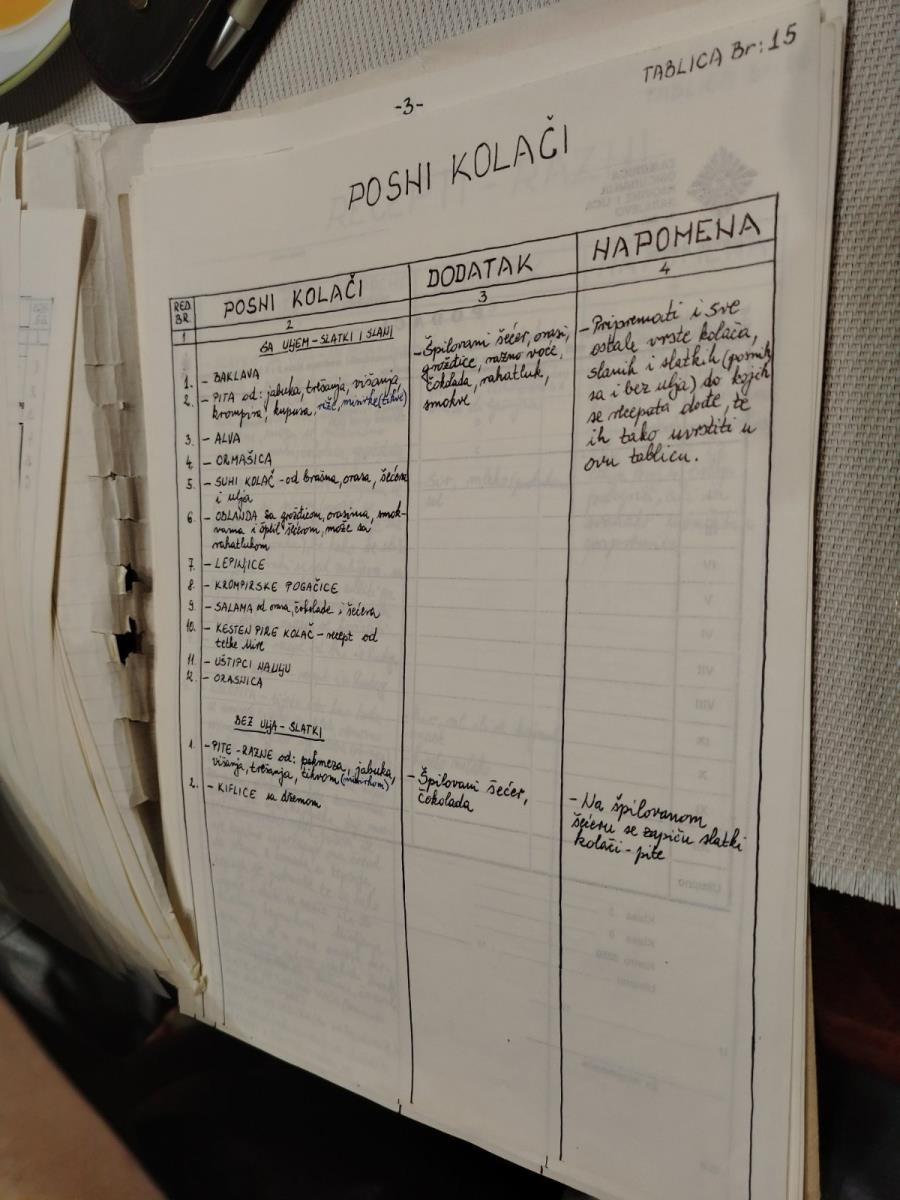 TABLICA Br: 15
-3-
POSNI KOLAČI
RED. BR.
POSNI KOLAČI
DODATAK
NAPOMENA
1
2
3
4
SA ULJEM-SLATKI I SLANI
1. - BAKLAVA
2. - PITA od: jabuka, trešanja, višanja,
krompira, kupusa, riže, misirke (tikve)
3. - ALVA
4. - ORMAŠICA
5. - SUHI KOLAČ - od brašna, orasa, šećera
i ulja
6. - OBLANDA sa grožđicom, orasima, smok-
vama i špil šećerom, može sa
rahatlukom
7. - LEPINJICE
8. - KROMPIRSKE POGAČICE
9. - SALAMA od orasa, čokolade i šećera
10. - KESTEN PIRE KOLAČ - recept od
tetke Mire
11. - UŠTIPCI NA ULJU
12. - ORASNICA
- Špilovani šećer, orasi,
grožđice, razno voće,
čokolada, rahatluk,
smokve
- Pripremati i sve
ostale vrste kolača,
slanih i slatkih (posnih
sa i bez ulja) do kojih
se recepata dođe, te
ih tako uvrstiti u
ovu tablicu.
BEZ ULJA-SLATKI
1. - PITE - RAZNE od: pekmeza, jabuka,
višanja, trešanja, tikvom (misirkom)
2. - KIFLICE sa džemom
- Špilovani šećer,
čokolada
- Na špilovanom
šećeru se zapiču slatki
kolači - pite